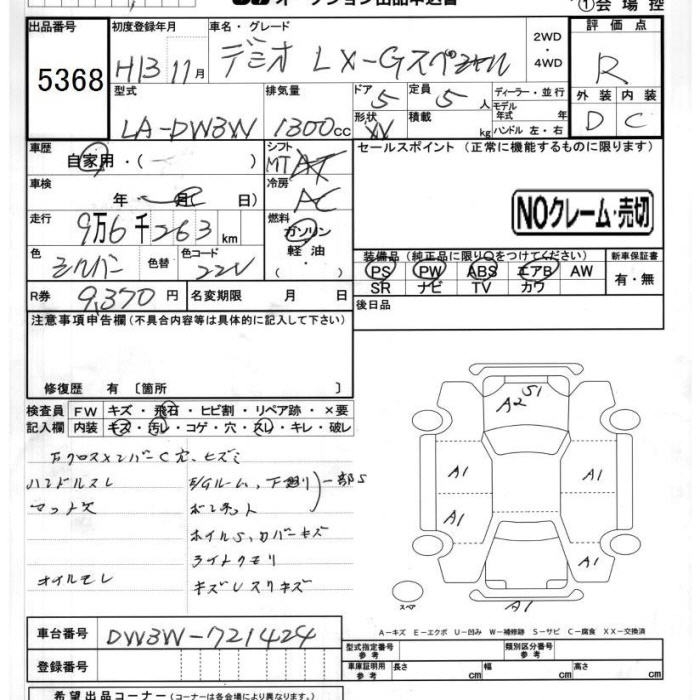 オークション出品申込書
①会場控
出品番号
5368
初度登録年月
H13 11月
車名・グレード
デミオ LX-Gスペシャル
2WD
・
4WD
評価点
R
外装 内装
D C
型式
LA-DW3W
排気量
1300cc
ドア 5
形状 W
定員 5人
積載 kg
ディーラー・並行
モデル年式 年式
ハンドル 左・右
車歴
自家用・( ー )
シフト
MT AT
セールスポイント (正常に機能するものに限ります)
車検
年 月( 日)
冷房
AC
NOクレーム・売切
走行
9万6千263km
燃料
ガソリン
軽油
・
色
シルバー
色替
色コード
22V
装備品(純正品に限り○をつけてください)
PS PW ABS エアB AW
SR ナビ TV カワ
新車保証書
有・無
R券 9,370円
名変期限 月 日
後日品
注意事項申告欄(不具合内容等は具体的に記入して下さい)
修復歴 有〔箇所 〕
検査員 FW キズ・飛石・ヒビ割・リペア跡・×要
記入欄 内装 キズ・汚レ・コゲ・穴・スレ・キレ・破レ
Fクロスメンバー C穴、ヒズミ
ハンドルスレ
E/Gルーム、下廻り 一部S
ボンネット
ホイルS、カバーキズ
ライトクモリ
オイルモレ
キズUスリキズ
S1
A2
A1
A1
A1
A1
A1
A1
スペア
A-キズ E-エクボ U-凹み W-補修跡 S-サビ C-腐食 XX-交換済
車台番号
DW3W-721424
登録番号
型式指定番号
参考
類別区分番号
参考
車庫証明用
参考
長さ cm
幅 cm
高さ cm
希望出品コーナー(コーナーは各会場により異なります)